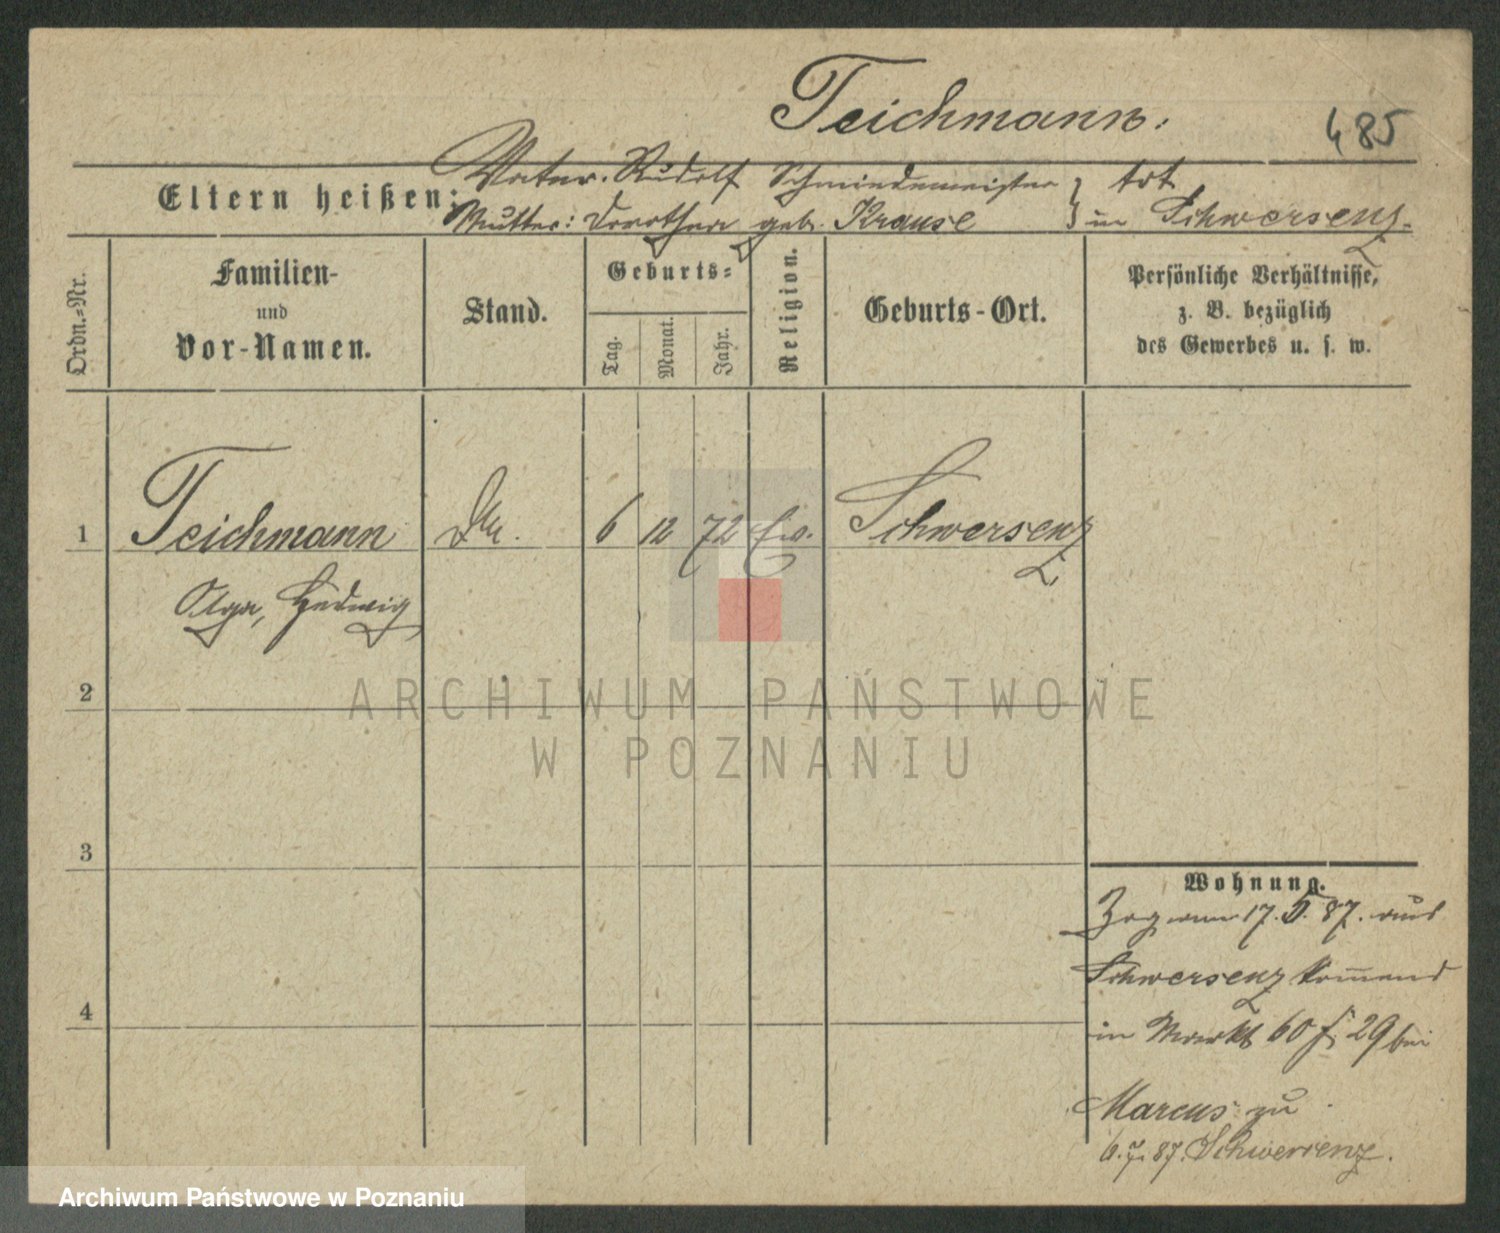 Teichmann.
485
Eltern heißen:
Vater: Rudolf Schmiedemeister } tot
Mutter: Dorothea geb. Krause } in Schwersenz.
Ordn.=Nr.
Familien-
und
Vor-Namen.
Stand.
Geburts=
Tag.
Monat.
Jahr.
Religion.
Geburts-Ort.
Persönliche Verhältnisse,
z. B. bezüglich
des Gewerbes u. s. w.
1 Teichmann 6 12 72 Ev. Schwersenz
Olga, Hedwig
2
3
4
Wohnung.
Zog am 17. 5. 87. aus
Schwersenz komend
in Markt 60 29 bei
Marcus zu
6. 7. 87. Schwersenz.
ARCHIWUM PAŃSTWOWE
W POZNANIU
Archiwum Państwowe w Poznaniu